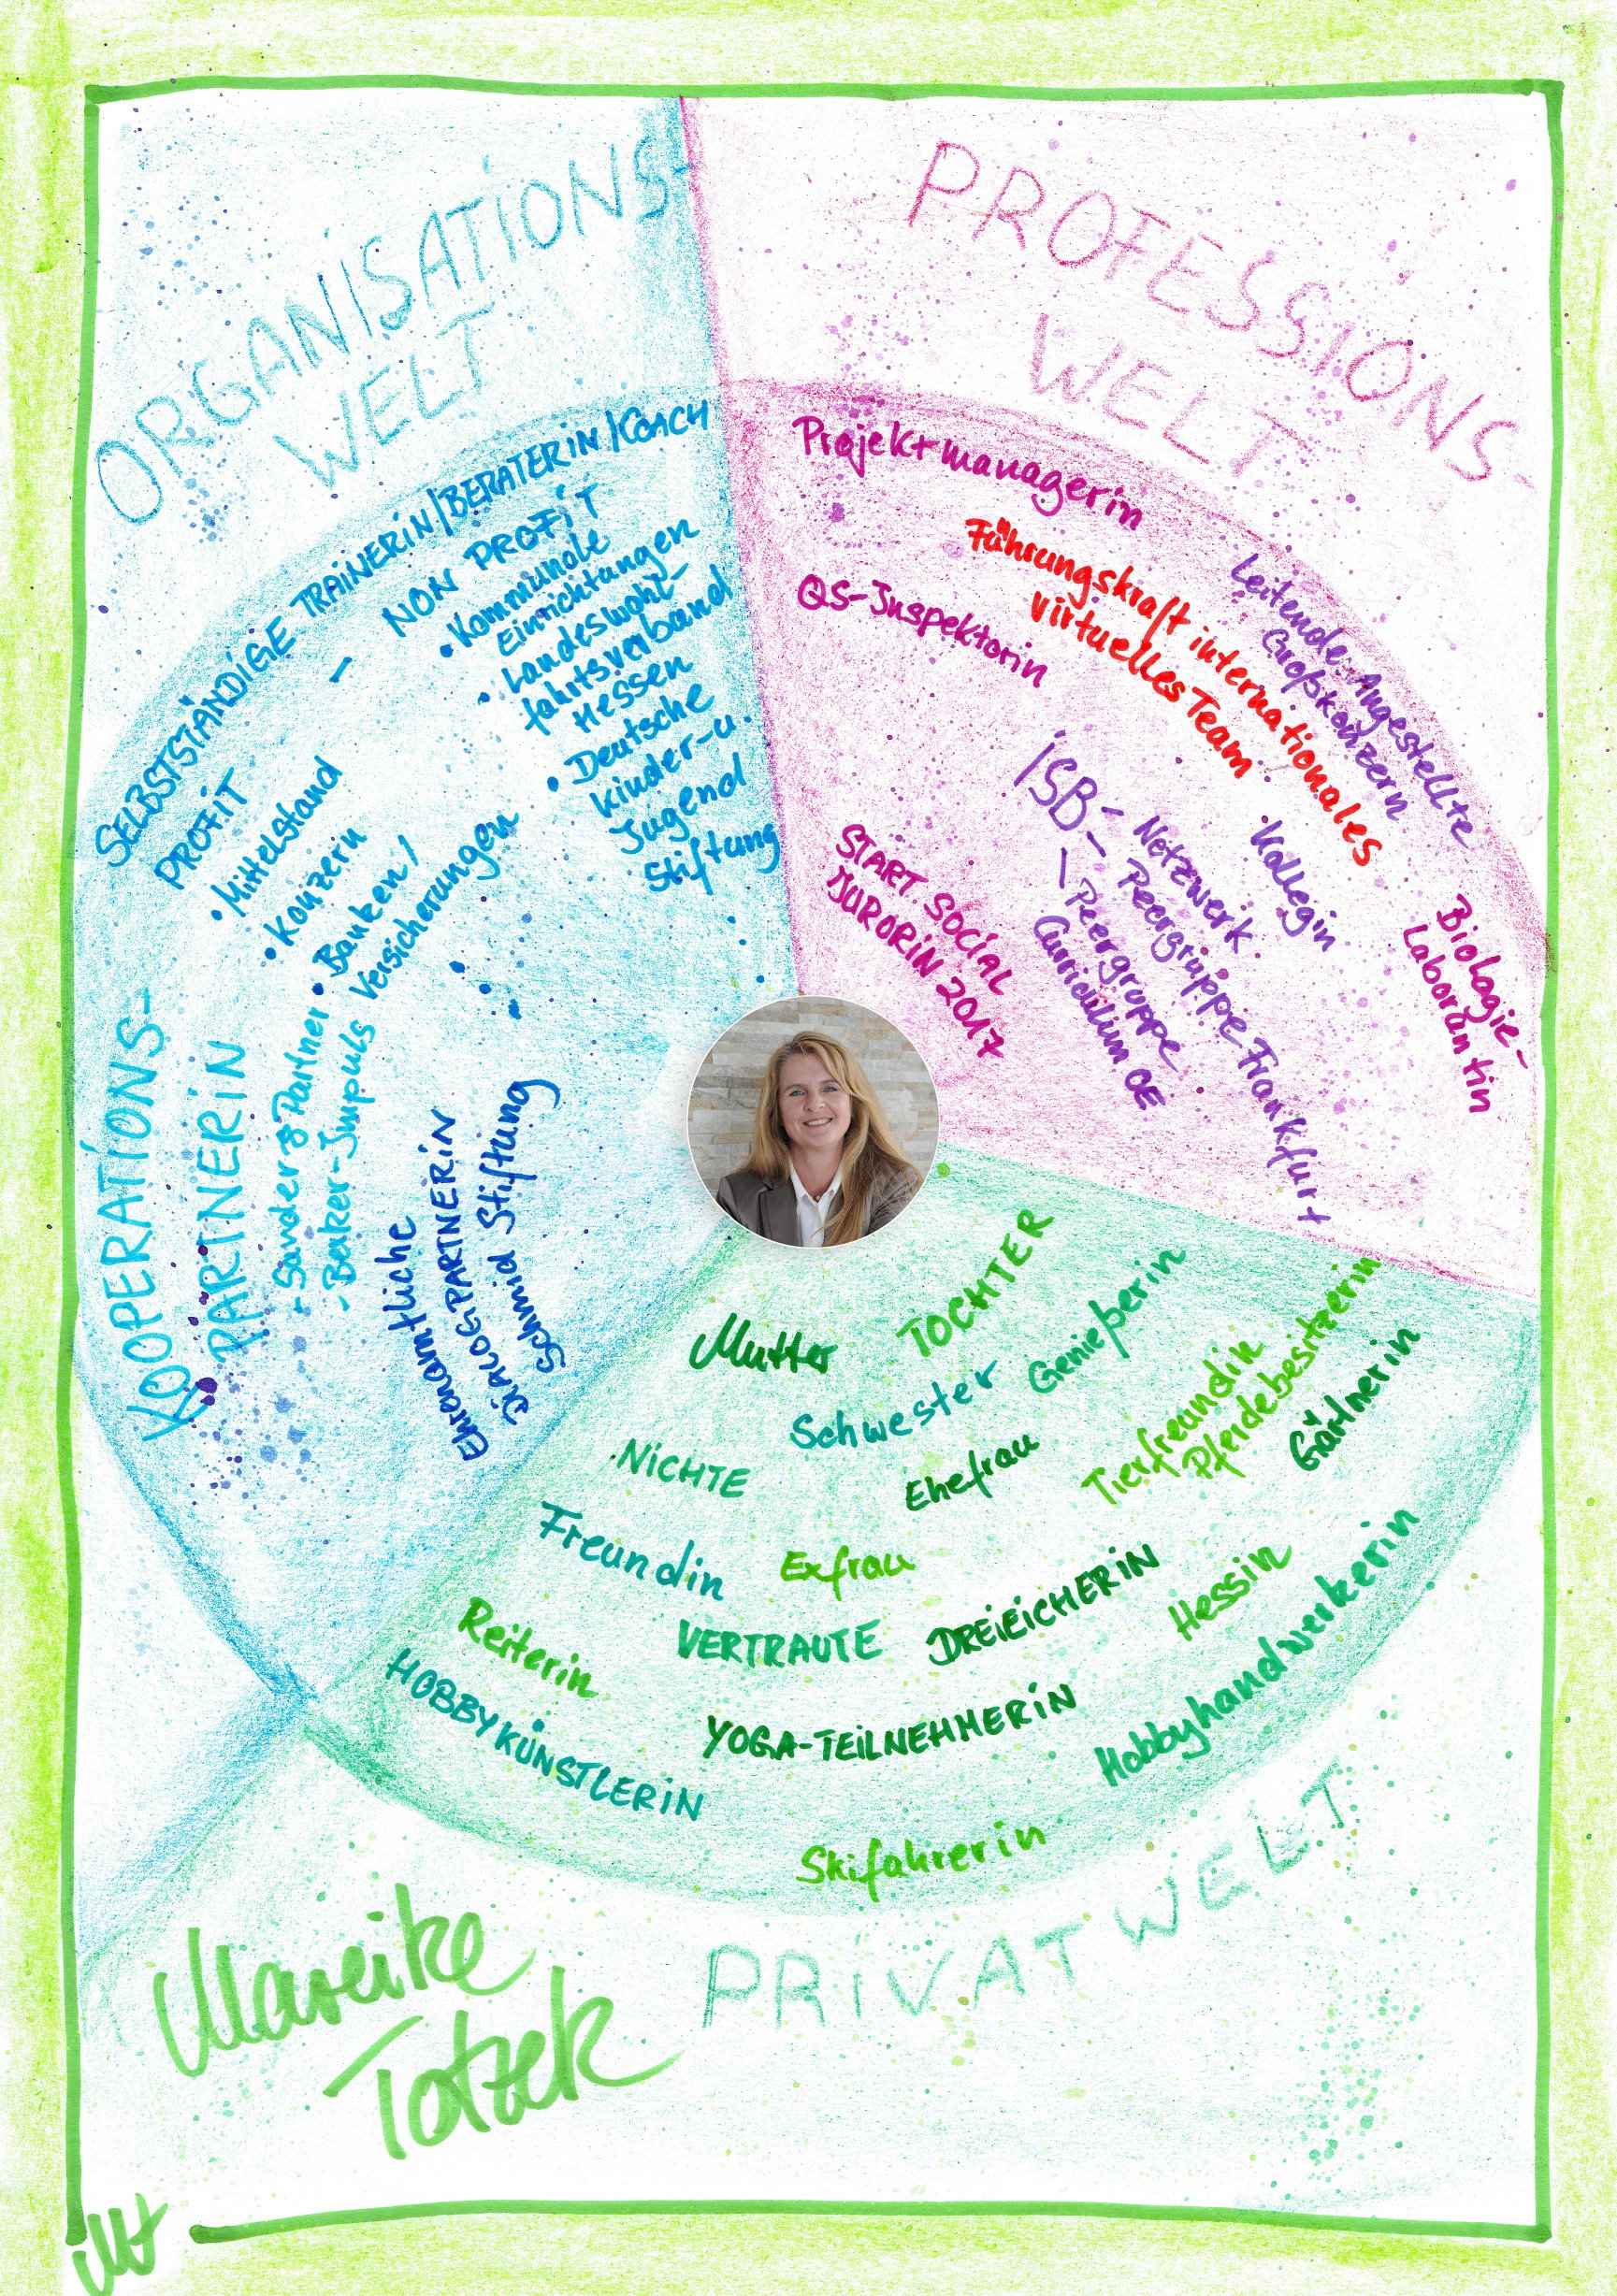 ORGANISATIONS-
WELT
SELBSTSTÄNDIGE TRAINERIN/BERATERIN/COACH
- NON PROFIT
• Kommunale
Einrichtungen
• Landeswohl-
fahrtsverband
Hessen
• Deutsche
Kinder-u.
Jugend
Stiftung
PROFIT
• Mittelstand
• Konzern
• Banken/
Versicherungen
KOOPERATIONS-
PARTNERIN
- Sander & Partner
- Beiker-Impuls
Ehrenamtliche
DIALOGPARTNERIN
Schmid Stiftung
PROFESSIONS-
WELT
Projektmanagerin
Führungskraft internationales
virtuelles Team
Leitende Angestellte
Großkonzern
QS-Inspektorin
ISB - Netzwerk
- Peergruppe Frankfurt
- Peergruppe
Curriculum OE
Kollegin
START SOCIAL
JURORIN 2017
Biologie-
Laborantin
Mutter
TOCHTER
Schwester
Genießerin
NICHTE
Ehefrau
Tierfreundin
Pferdebesitzerin
Gärtnerin
Freundin
Exfrau
Reiterin
VERTRAUTE
DREIEICHERIN
Hessin
HOBBYKÜNSTLERIN
YOGA-TEILNEHMERIN
Hobbyhandwerkerin
Skifahrerin
PRIVATWELT
Mareike
Totzek
MT